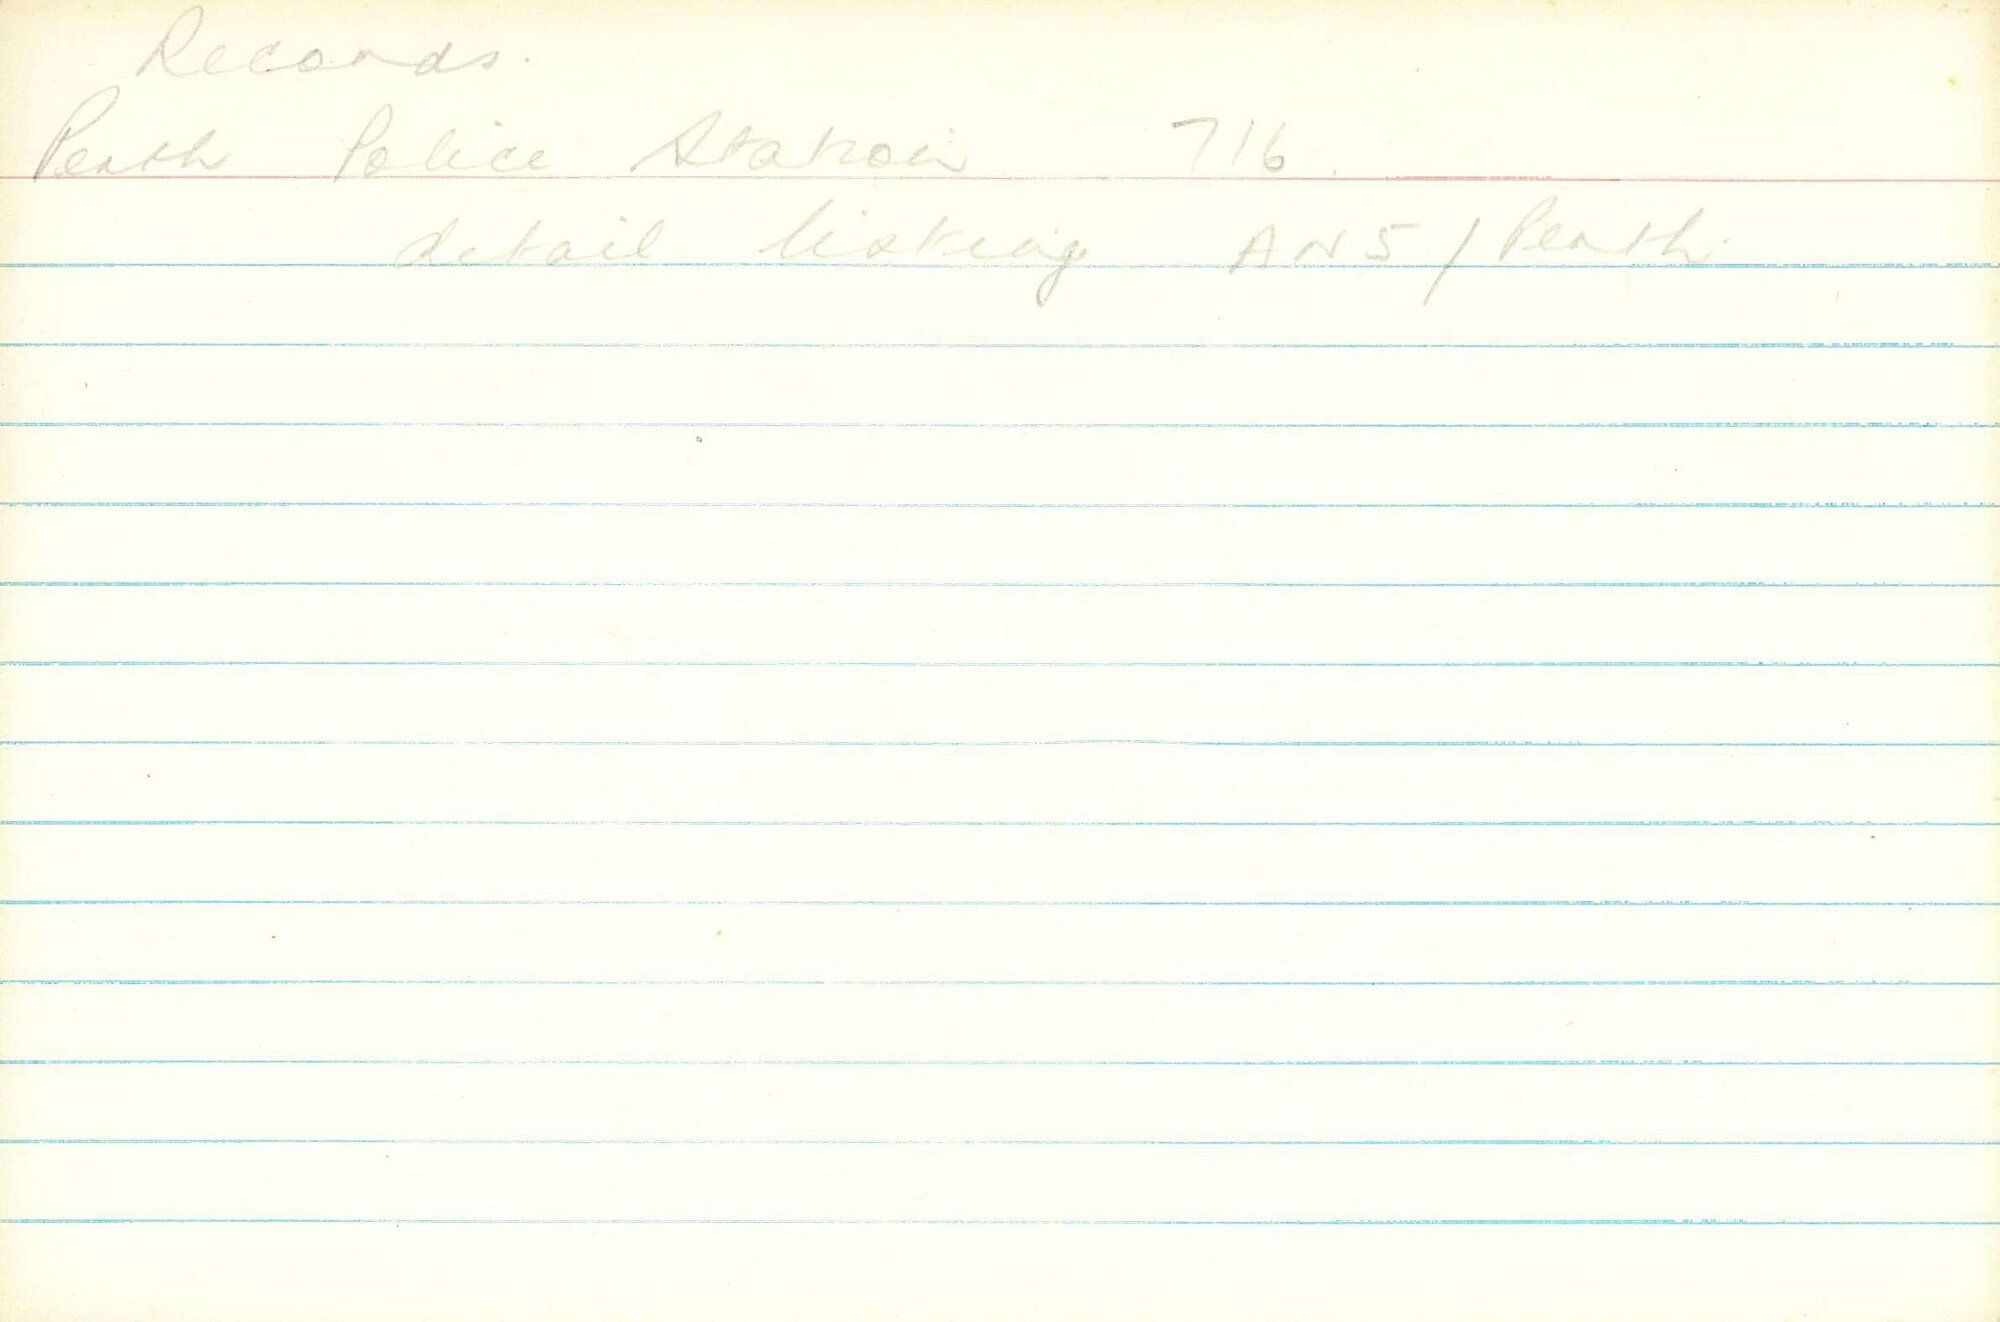 Records.
Perth Police Station 716.
detail listing AN5/Perth.